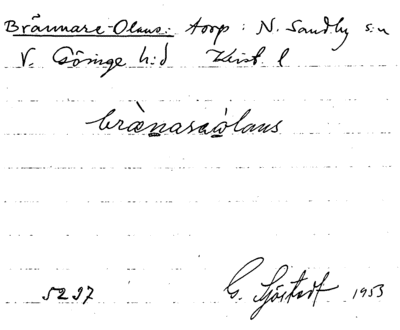 Brännare-Olaus: torp: N. Sandby s:n
V. Göinge h:d Krist l
brä̀nasaòlaus
5297
G. Sjöstedt 1953